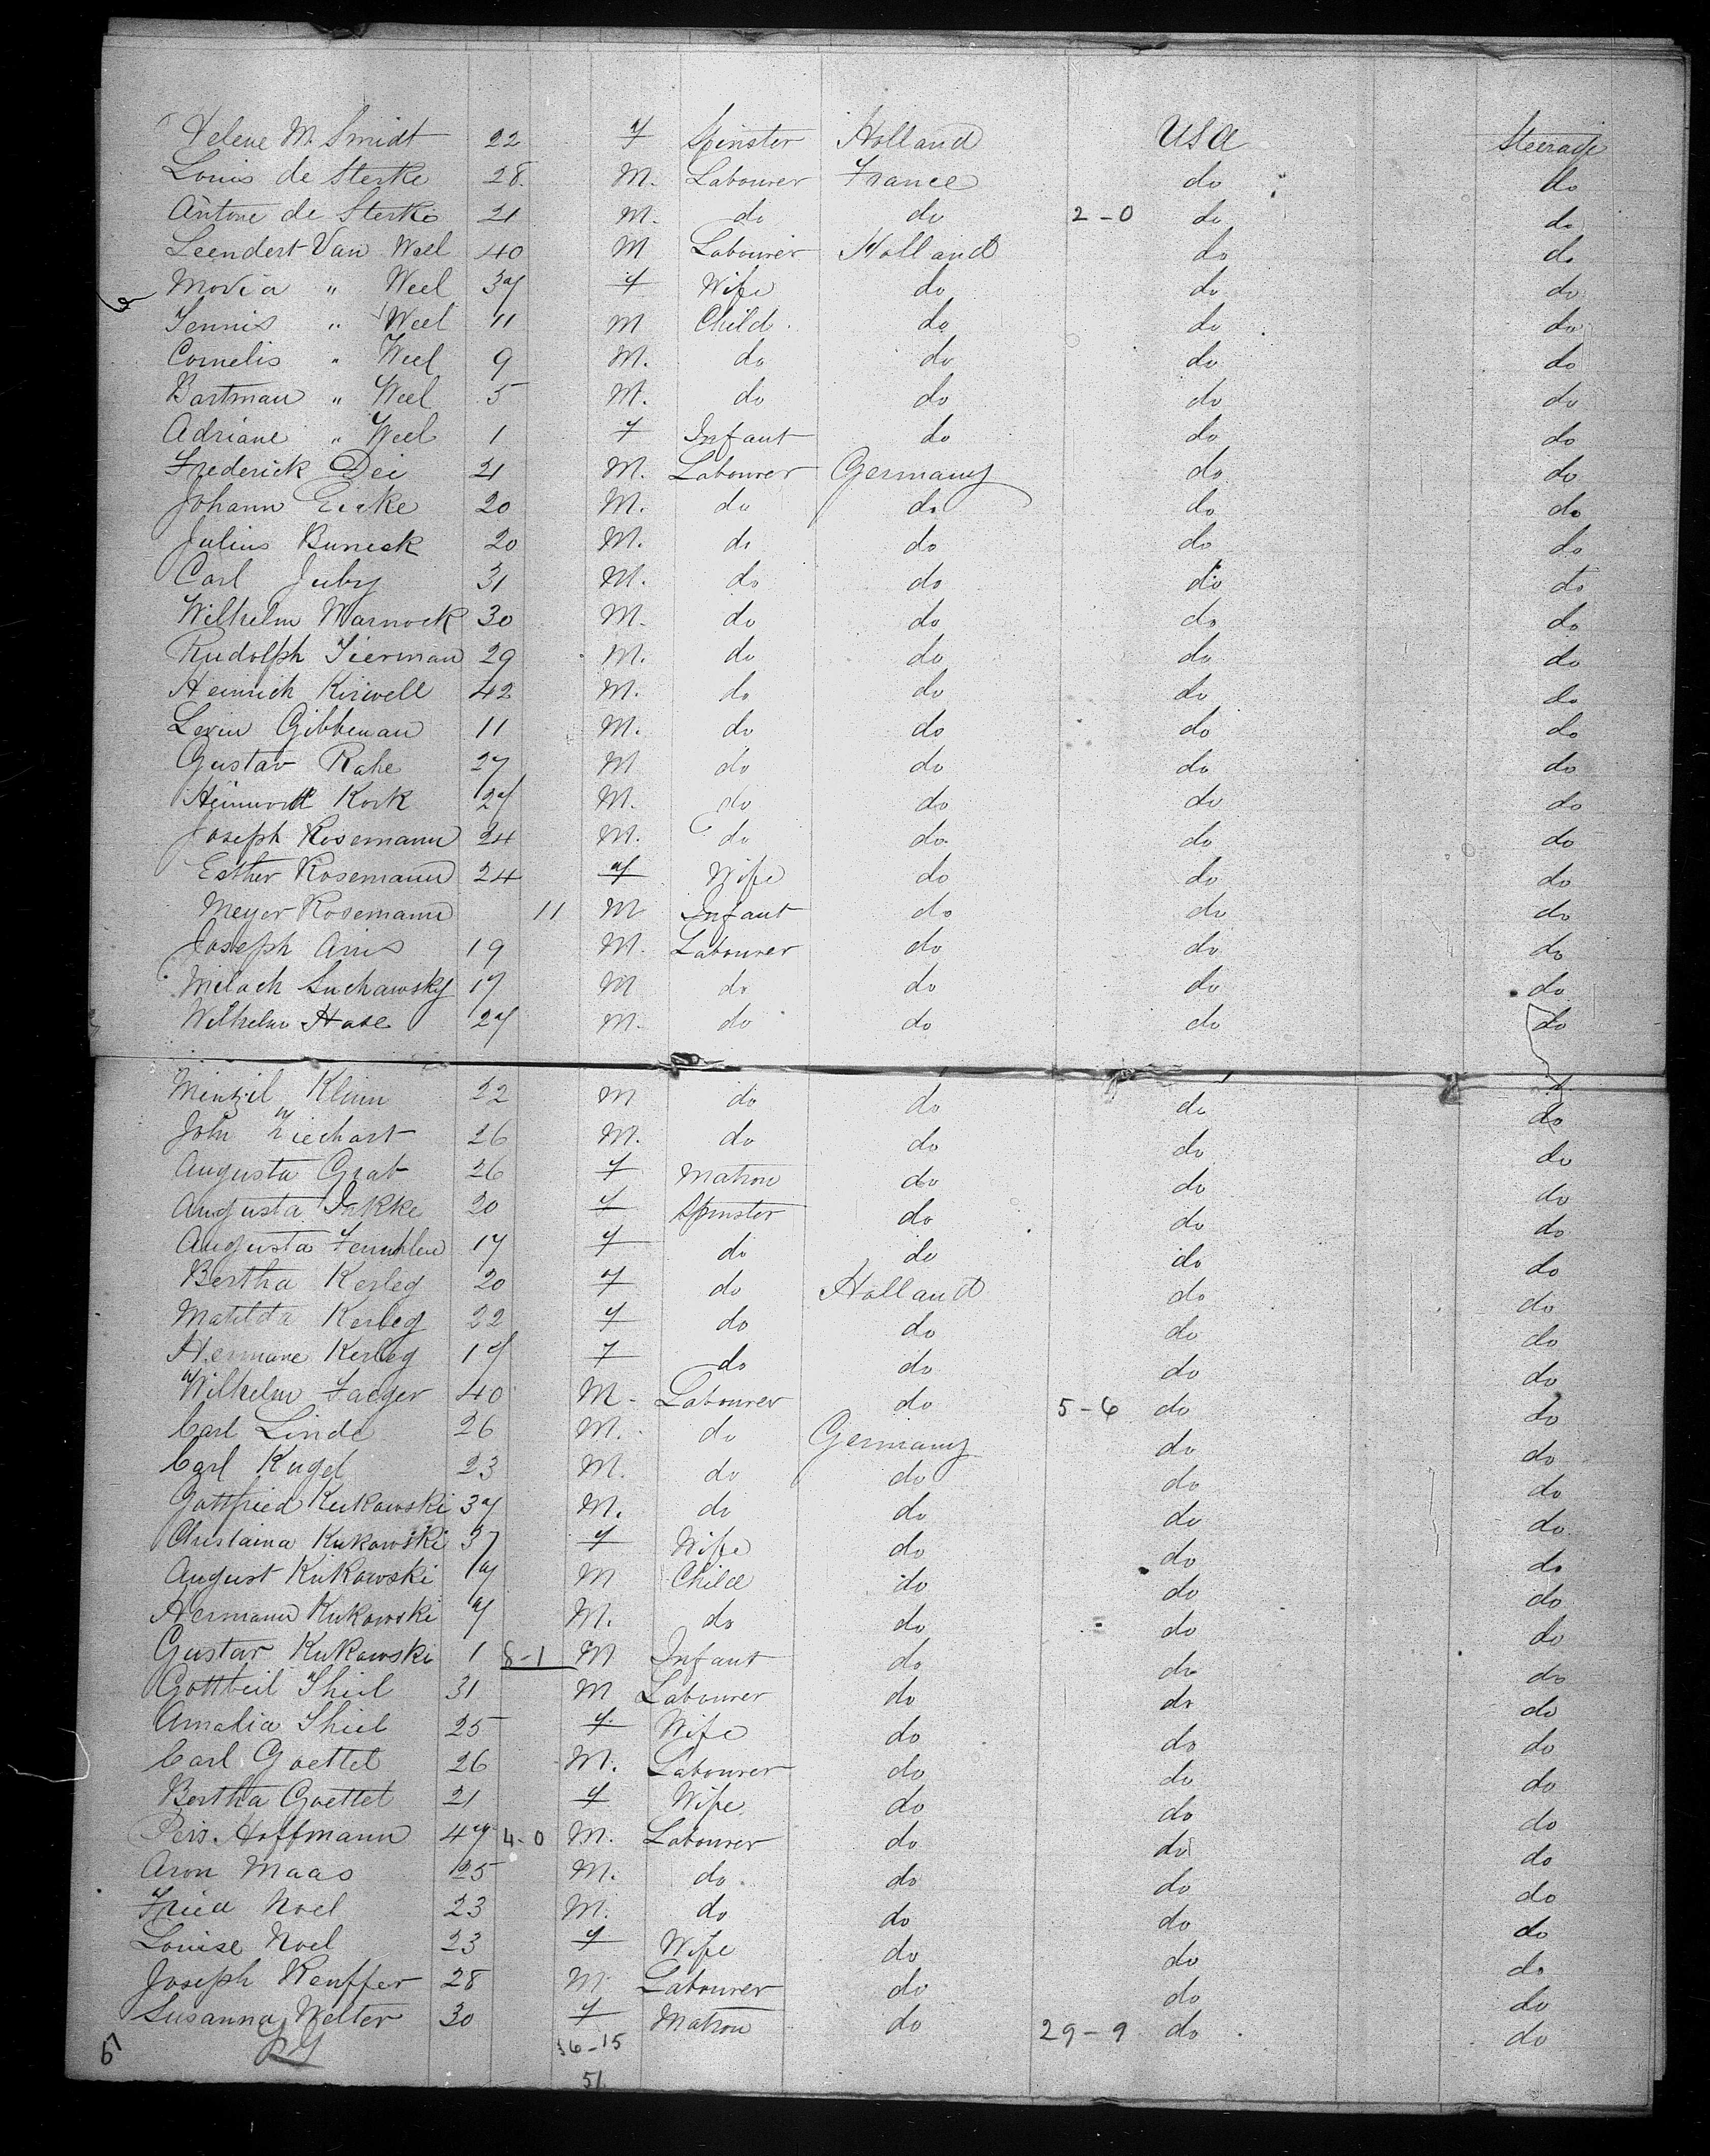 Helene M. Smidt 22 f Spinster Holland USA Steerage
Louis de Sterke 28. M. Labourer France do do
Antone de Sterke 21 M. do do 2-0 do do
Leendert Van Weel 40 M Labourer Holland do do
Movia " Weel 37 f Wife do do do
Tennis " Weel 11 M Child. do do do
Cornelis " Weel 9 M. do do do do
Bartman " Weel 5 M. do do do do
Adriane " Weel 1 f Infant do do do
Frederick Dei 21 M. Labourer Germany do do
Johann Eicke 20 M. do do do do
Julius Buneck 20 M. do do do do
Carl Juby 31 M. do do do do
Wilhelm Warnock 30 M. do do do do
Rudolph Tierman 29 M. do do do do
Heinrich Kirwell 42 M. do do do do
Levin Gibbeman 11 M. do do do do
Gustav Rahe 27 M do do do do
Kork 27 M. do do do do
Joseph Rosemann 24 M. do do do do
Esther Rosemann 24 f Wife do do do
Meyer Rosemann 11 M Infant do do do
Joseph Aris 19 M. Labourer do do do
Milach Suchawsky 17 M do do do do
Wilhelm Hase 27 M. do do do do
Mintzil Klinn 22 M do do do do
John Ziechart 26 M. do do do do
Augusta Grab 26 f Matron do do do
Augusta Inkke 20 f Spinster do do do
Augusta 17 f do do do do
Bertha Kerleg 20 f do Holland do do
Matilda Kerleg 22 f do do do do
Hermane Kerleg 17 f do do do do
Wilhelm Jaeger 40 M. Labourer do 5-6 do do
Carl Linde 26 M. do Germany do do
Carl Kugel 23 M. do do do do
Gottfried Kukowski 37 M. do do do do
Christaina Kukowski 37 f Wife do do do
August Kukowski M Child do do do
Hermann Kukowski 7 M. do do do do
Gustav Kukowski 1 8-1 M Infant do do do
Gottbeil Thiel 31 M Labourer do do do
Amalia Thiel 25 f Wife do do do
Carl Goettel 26 M. Labourer do do do
Bertha Goettel 21 f Wife do do do
Peis. Hoffmann 47 4-0 M. Labourer do do do
Aron Maas 25 M. do do do do
Fried Noel 23 M. do do do do
Louise Noel 23 f Wife do do do
Joseph Reuffer 28 M Labourer do do do
Susanna Welter 30 f Matron do 29-9 do do
36-15
51